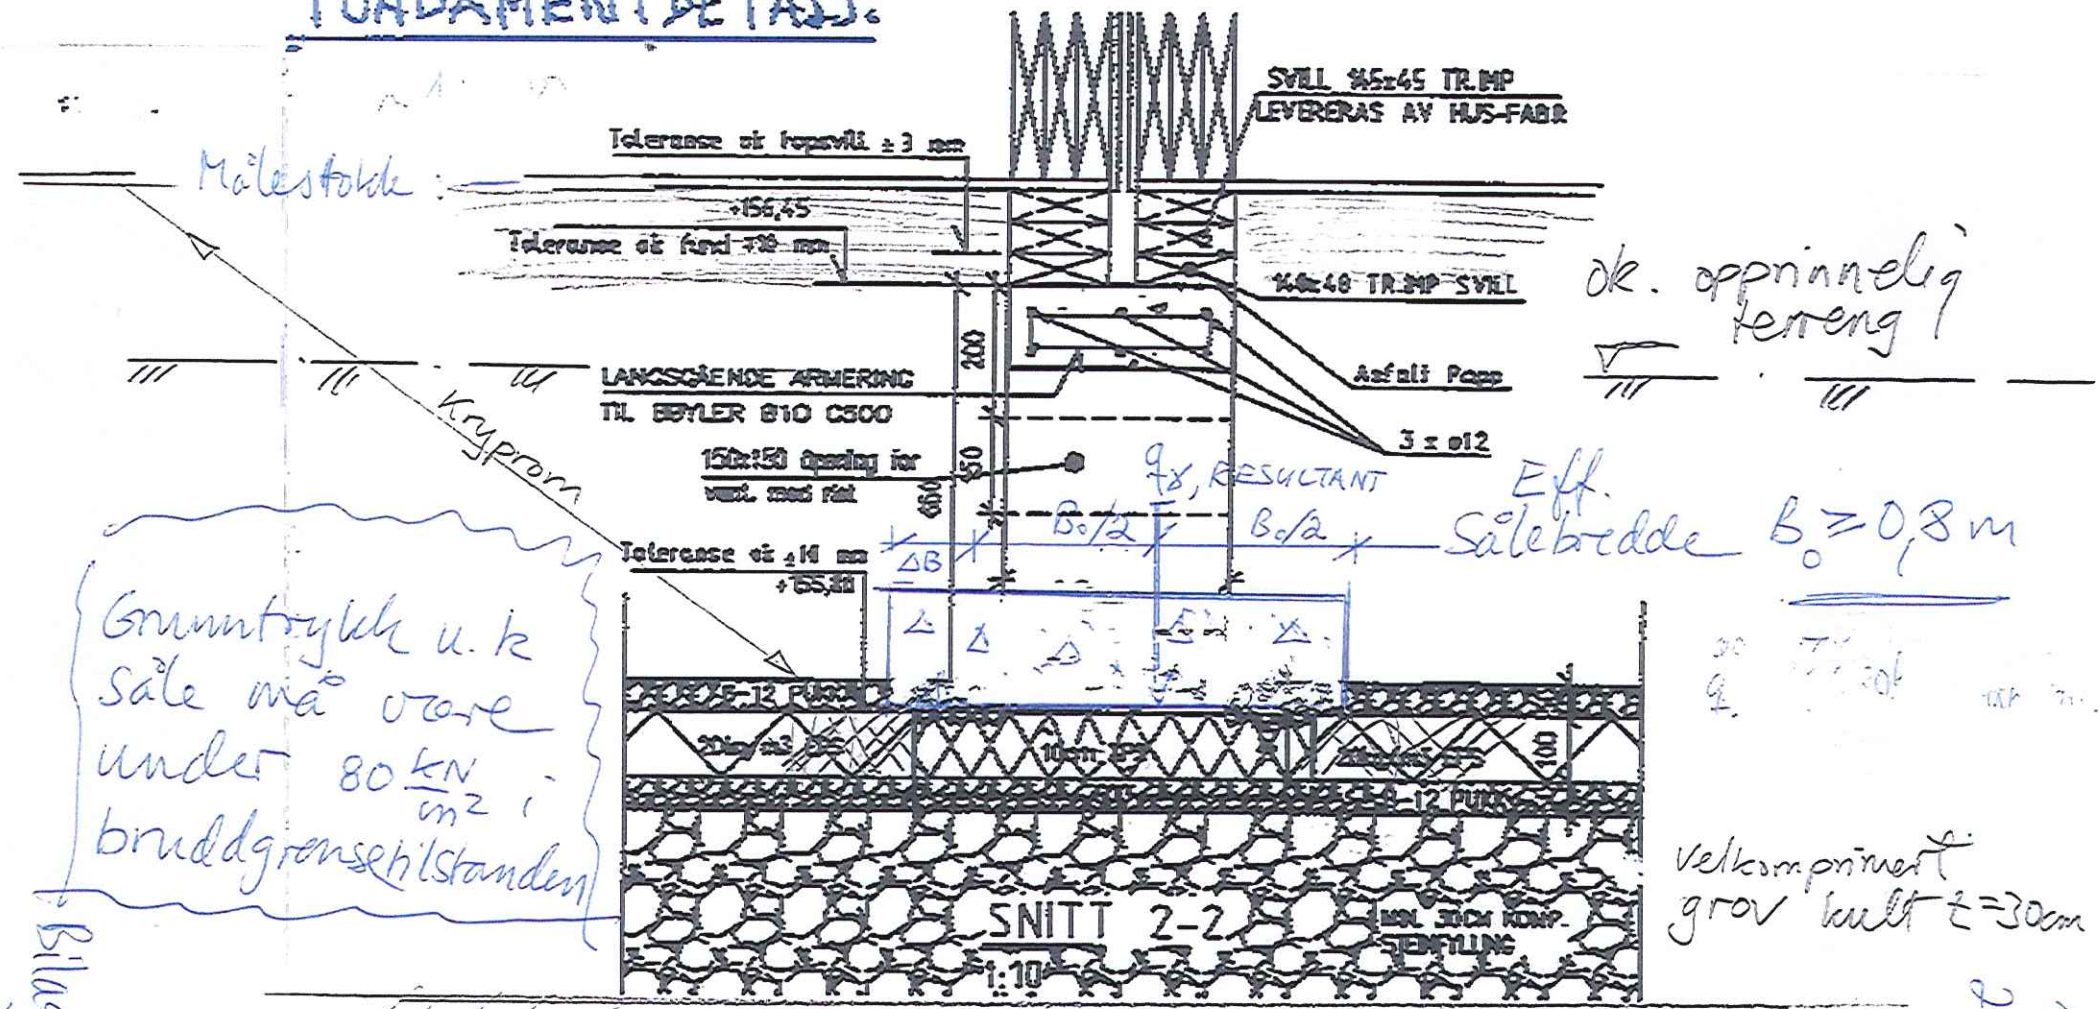 FUNDAMENTDETALJ:
SVILL 145x45 TR.IMP
LEVERERAS AV HUS-FABR
Toleranse ok toppsvill ± 3 mm
Målestokk :
+156,45
Toleranse ok fund ±10 mm
148x48 TR.IMP SVILL
ok. opprinnelig
terreng
200
LANGSGÅENDE ARMERING
TIL BØYLER Ø10 C500
Asfalt Papp
Kryprom
3 x ø12
150x150 åpning for
vent. med rist
RESULTANT
Eff.
Sålebredde B₀ ≥ 0,8 m
B₀/2
B₀/2
ΔB
Toleranse ok ±10 mm
Grunntrykk u.k
såle må være
under 80 kN/m² i
bruddgrensetilstanden
8-12 PUKK
20kg/m3 EPS
10cm EPS
20kg/m3 EPS
100
8-12 PUKK
velkomprimert
grov kult t=30cm
SNITT 2-2
MIN. 30CM KOMP.
STEINFYLLING
1:10